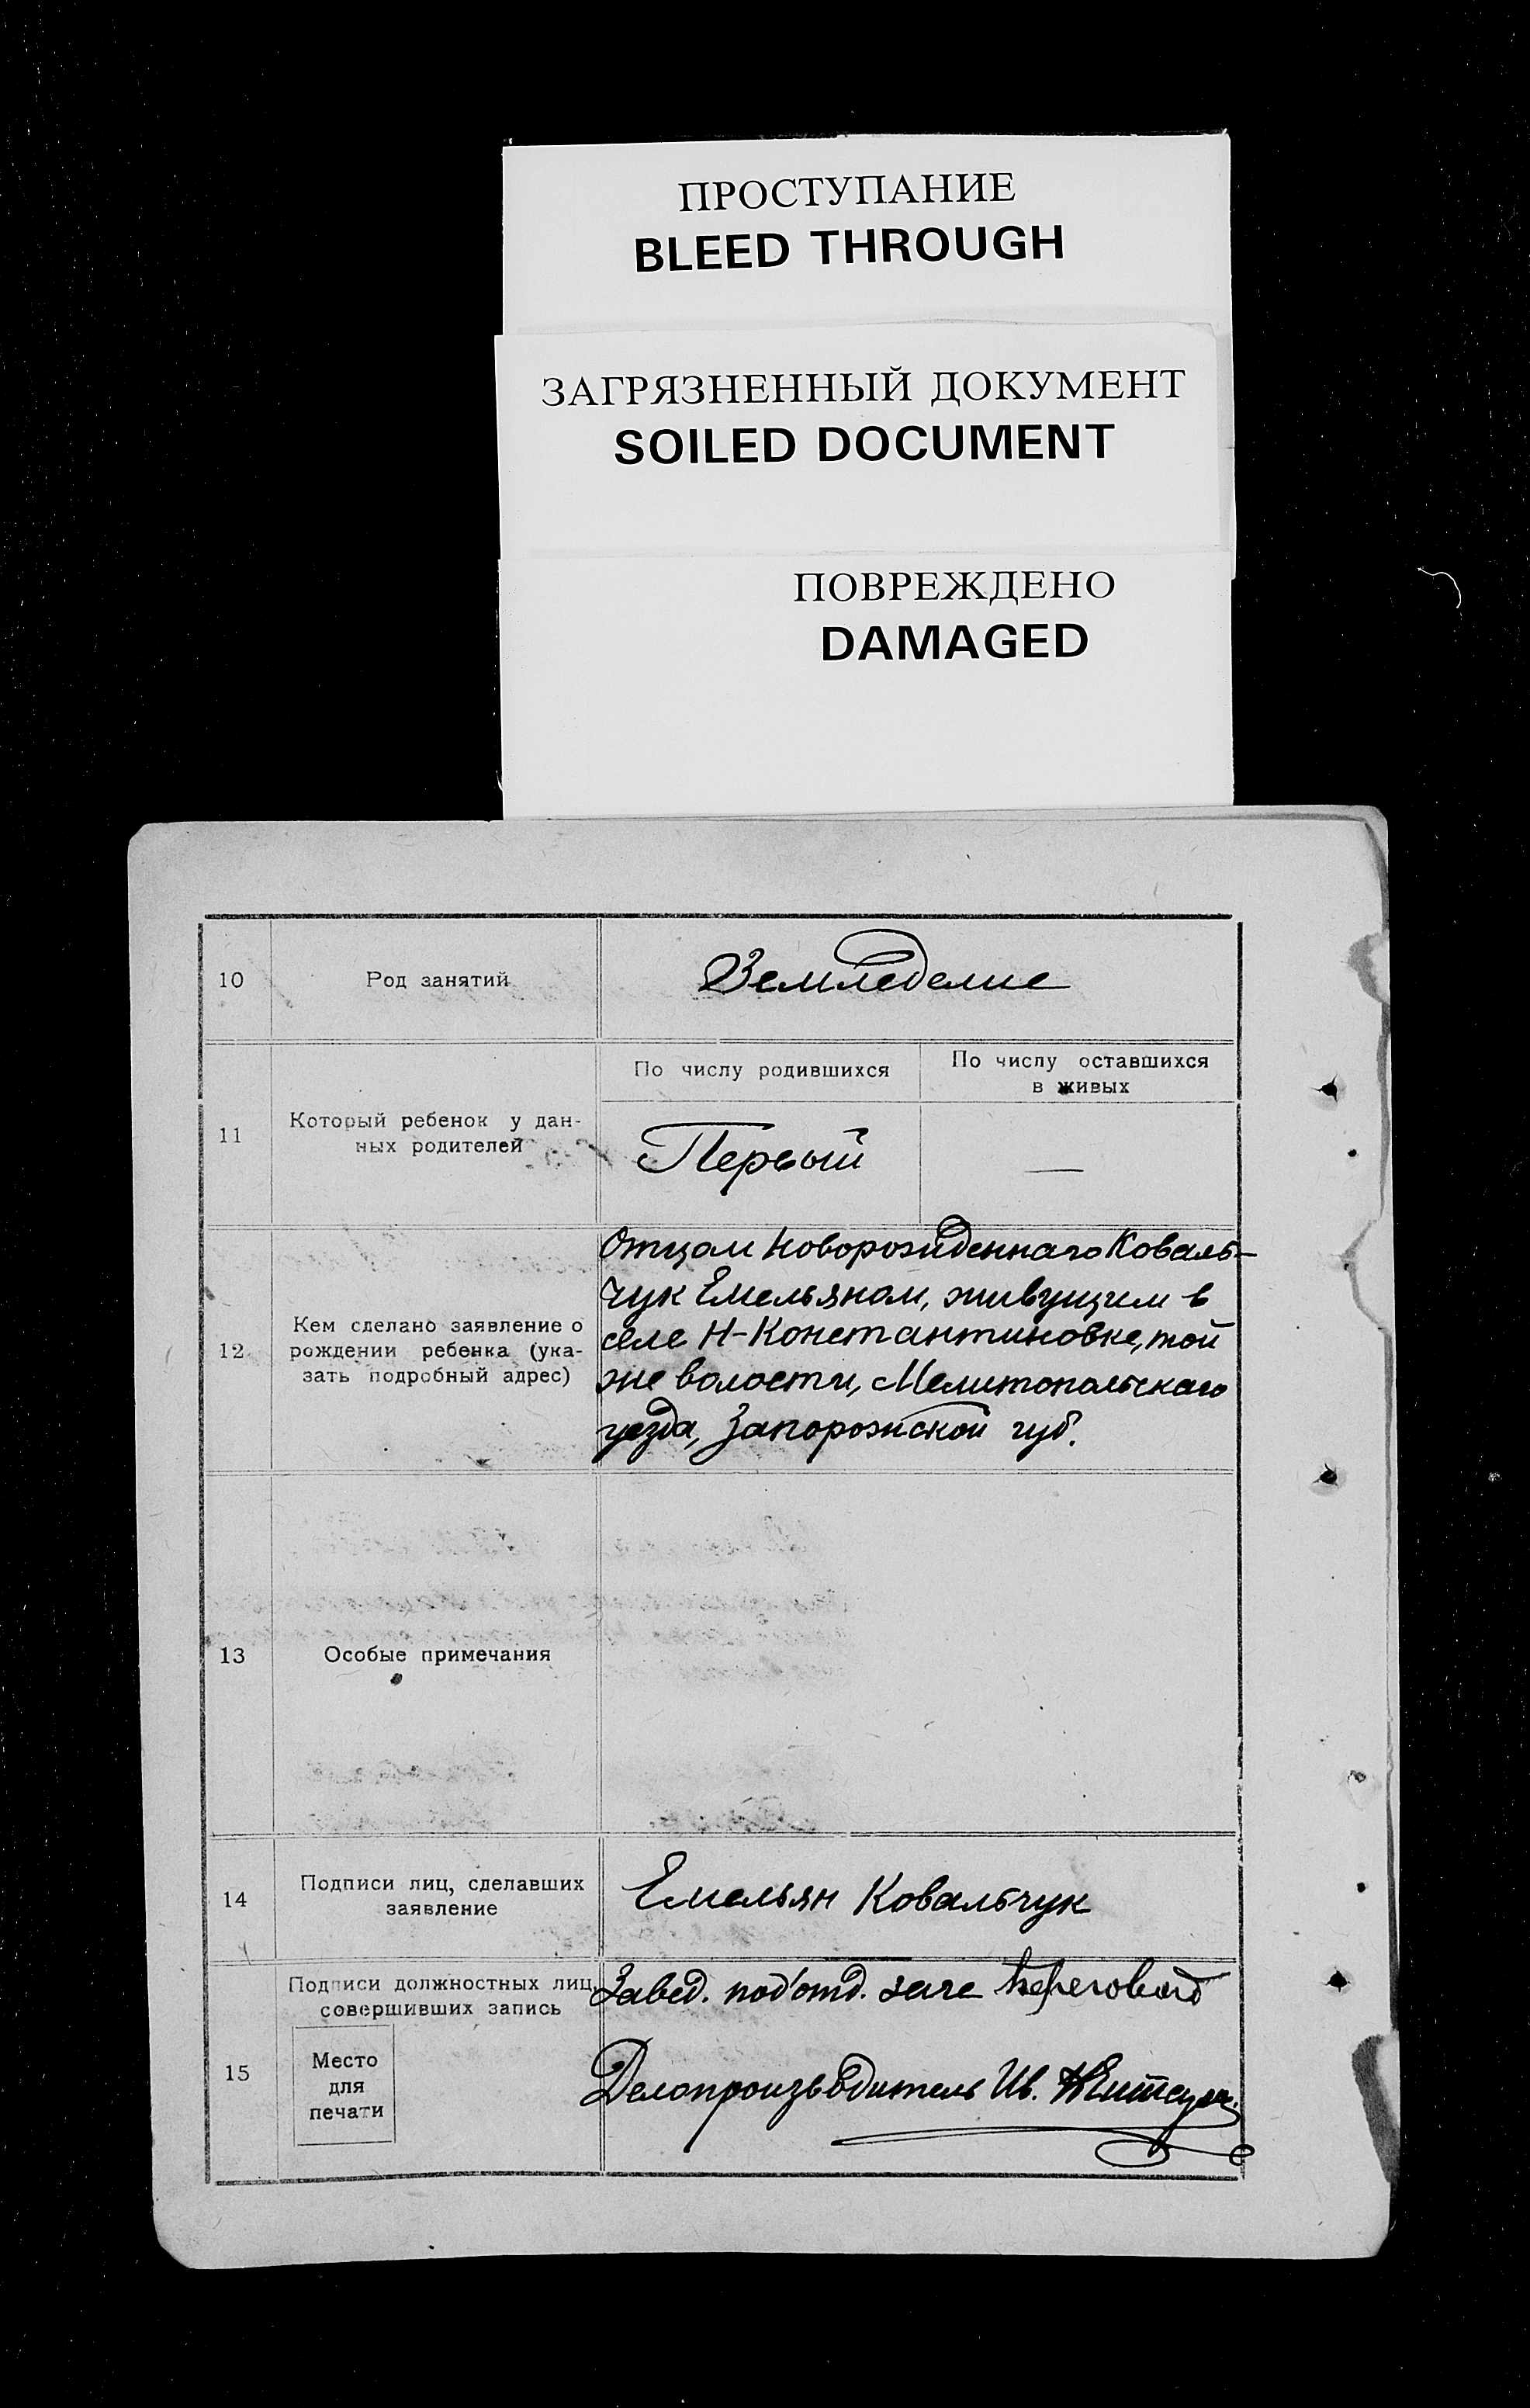 ПРОСТУПАНИЕ
BLEED THROUGH
ЗАГРЯЗНЕННЫЙ ДОКУМЕНТ
SOILED DOCUMENT
ПОВРЕЖДЕНО
DAMAGED
10
Род занятий
Земледелие
11
Который ребенок у дан-
ных родителей
По числу родившихся
По числу оставшихся
в живых
Первый
—
12
Кем сделано заявление о
рождении ребенка (ука-
зать подробный адрес)
Отцом новорожденнаго Коваль-
чук Емельяном, живущим в
селе Н-Константиновке, той
же волости, Мелитопольскаго
уезда, Запорожской губ.
13
Особые примечания
14
Подписи лиц, сделавших
заявление
Емельян Ковальчук
15
Подписи должностных лиц,
совершивших запись
Место
для
печати
Завед. под'отд. загс
Делопроизводитель Ив.